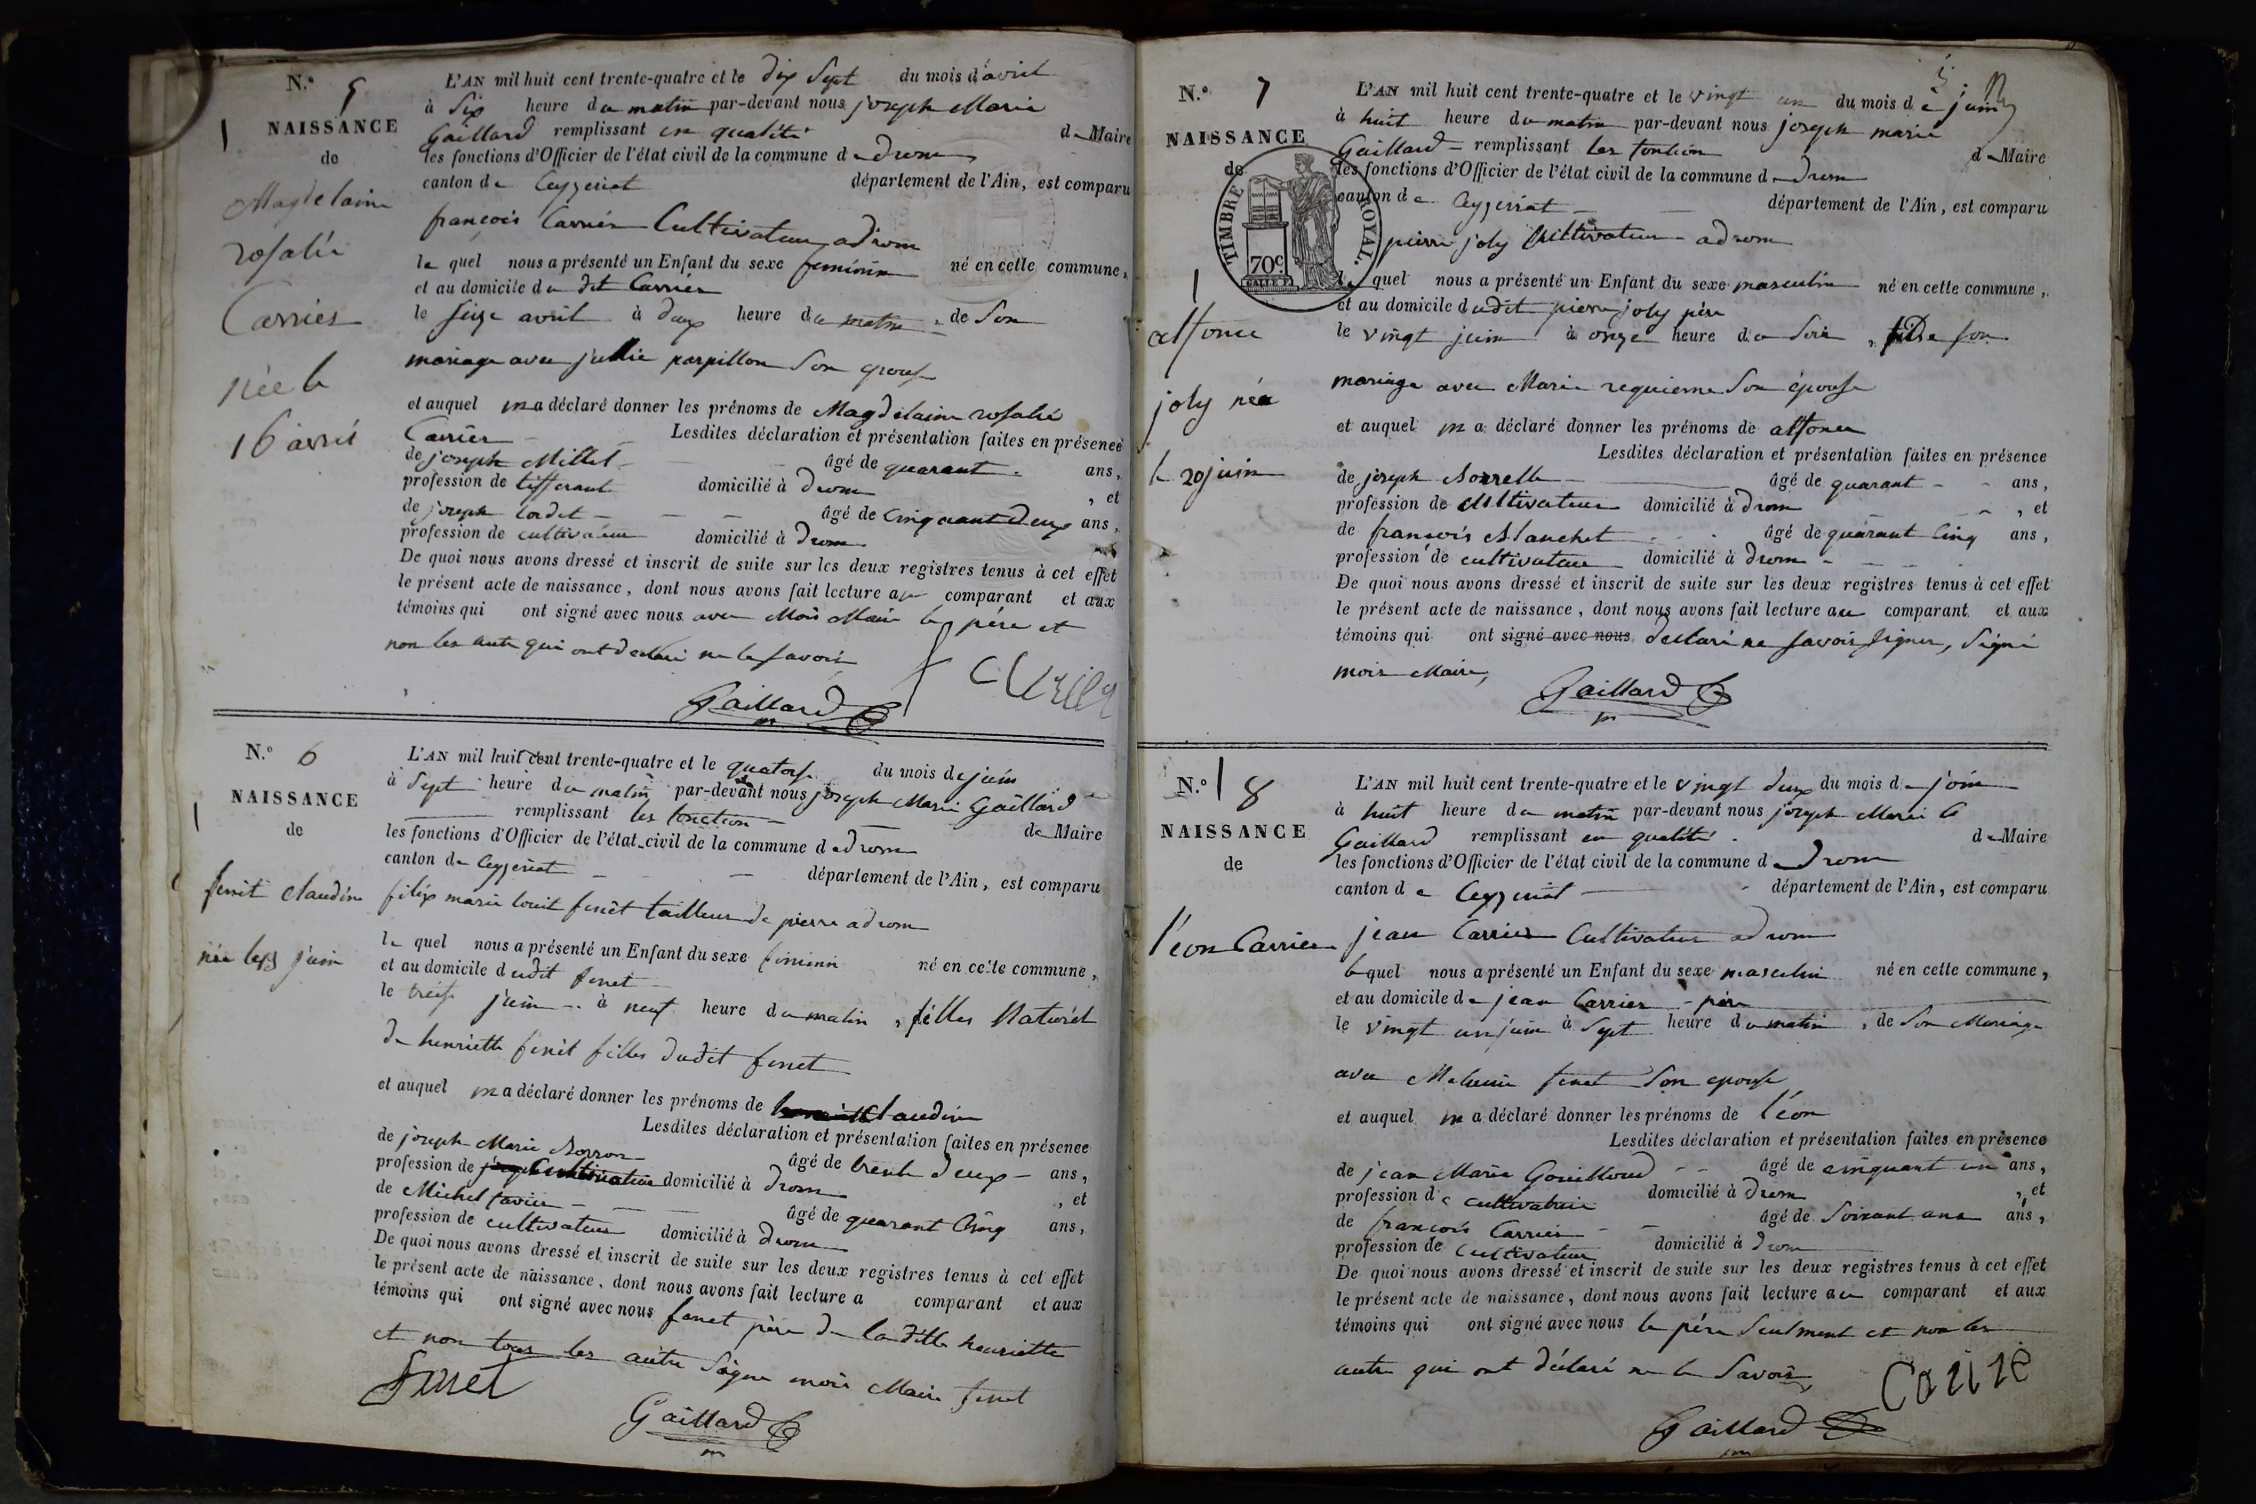 N.o 5
NAISSANCE
de
Magdelaine
rosalie
Carrier
née le
16 avril
L'AN mil huit cent trente-quatre et le dix Sept du mois d'avril
à Six heure du matin par-devant nous joseph Marie
Gaillard remplissant en qualité de Maire
les fonctions d'Officier de l'état civil de la commune de drom
canton de Ceyzeriat département de l'Ain, est comparu
françois Carrier Cultivateur adrom
le quel nous a présenté un Enfant du sexe feminin né en cette commune,
et au domicile du dit Carrier
le seize avril à deux heure du matin, de Son
mariage avec jullie parpillon Son epouse
et auquel il a déclaré donner les prénoms de Magdelaine rosalie
Carrier Lesdites déclaration et présentation faites en présence
de joseph Millet âgé de quarant ans,
profession de tisserant domicilié à drom, et
de joseph cordet âgé de Cinquant deux ans,
profession de cultivateur domicilié à drom
De quoi nous avons dressé et inscrit de suite sur les deux registres tenus à cet effet
le présent acte de naissance, dont nous avons fait lecture au comparant et aux
témoins qui ont signé avec nous avec Mois Maire le père et
non les autre qui ont declaré ne le savoir
Gaillard
N.o 6
NAISSANCE
de
fenet claudine
née le 13 juin
L'AN mil huit cent trente-quatre et le quatorse du mois de juin
à Sept heure du matin par-devant nous joseph Marie Gaillard
remplissant les fonction de Maire
les fonctions d'Officier de l'état civil de la commune de drom
canton de Ceyzeriat département de l'Ain, est comparu
filix marie louit fenet tailleur de pierre adrom
le quel nous a présenté un Enfant du sexe feminin né en cette commune,
et au domicile dudit fenet
le treise juin à neuf heure du matin, filles Naturel
de henriette fenet filles dudit fenet
et auquel il a déclaré donner les prénoms de claudine
Lesdites déclaration et présentation faites en présence
de joseph Marie Borron âgé de trente deux ans,
profession de Cultivateur domicilié à drom, et
de Michel favier âgé de quarant Cinq ans,
profession de cultivateur domicilié à drom
De quoi nous avons dressé et inscrit de suite sur les deux registres tenus à cet effet
le présent acte de naissance, dont nous avons fait lecture a comparant et aux
témoins qui ont signé avec nous fenet père de laditte henriette
et non tous les autre Signe mois Maire fenet
fenet
Gaillard
N.o 7
NAISSANCE
de
TIMBRE ROYAL.
70c
alfonce
joly née
le 20 juin
L'AN mil huit cent trente-quatre et le vingt un du mois de juin
à huit heure du matin par-devant nous joseph marie
Gaillard remplissant les fontion de Maire
les fonctions d'Officier de l'état civil de la commune de drom
canton de Ceyzeriat département de l'Ain, est comparu
pierre joly Cultivateur adrom
le quel nous a présenté un Enfant du sexe masculin né en cette commune,
et au domicile dudit pierre joly père
le vingt juin à onze heure du Soir, De son
mariage avec Marie requieme Son épouse
et auquel il a déclaré donner les prénoms de alfonce
Lesdites déclaration et présentation faites en présence
de joseph Borrelle âgé de quarant ans,
profession de Cultivateur domicilié à drom, et
de françois Blanchet âgé de quarant Cinq ans,
profession de cultivateur domicilié à drom
De quoi nous avons dressé et inscrit de suite sur les deux registres tenus à cet effet
le présent acte de naissance, dont nous avons fait lecture au comparant et aux
témoins qui ont signé avec nous declaré ne savoir signer, Signé
mois Maire,
Gaillard
N.o 8
NAISSANCE
de
léon Carrier
L'AN mil huit cent trente-quatre et le vingt deux du mois de join
à huit heure du matin par-devant nous joseph Marie
Gaillard remplissant en qualité de Maire
les fonctions d'Officier de l'état civil de la commune de Drom
canton de Ceyzeriat département de l'Ain, est comparu
jean Carrier Cultivateur adrom
le quel nous a présenté un Enfant du sexe masculin né en cette commune,
et au domicile de jean Carrier père
le vingt un juin à Sept heure du matin, de Son Mariage
avec fenet Son epouse
et auquel il a déclaré donner les prénoms de léon
Lesdites déclaration et présentation faites en présence
de jean Marie Gouilloud âgé de cinquant un ans,
profession de cultivateur domicilié à drom, et
de françois Carrier âgé de Soixant ans ans,
profession de cultivateur domicilié à drom
De quoi nous avons dressé et inscrit de suite sur les deux registres tenus à cet effet
le présent acte de naissance, dont nous avons fait lecture au comparant et aux
témoins qui ont signé avec nous le père Seulment et non les
autre qui ont déclaré ne le Savoir
Gaillard